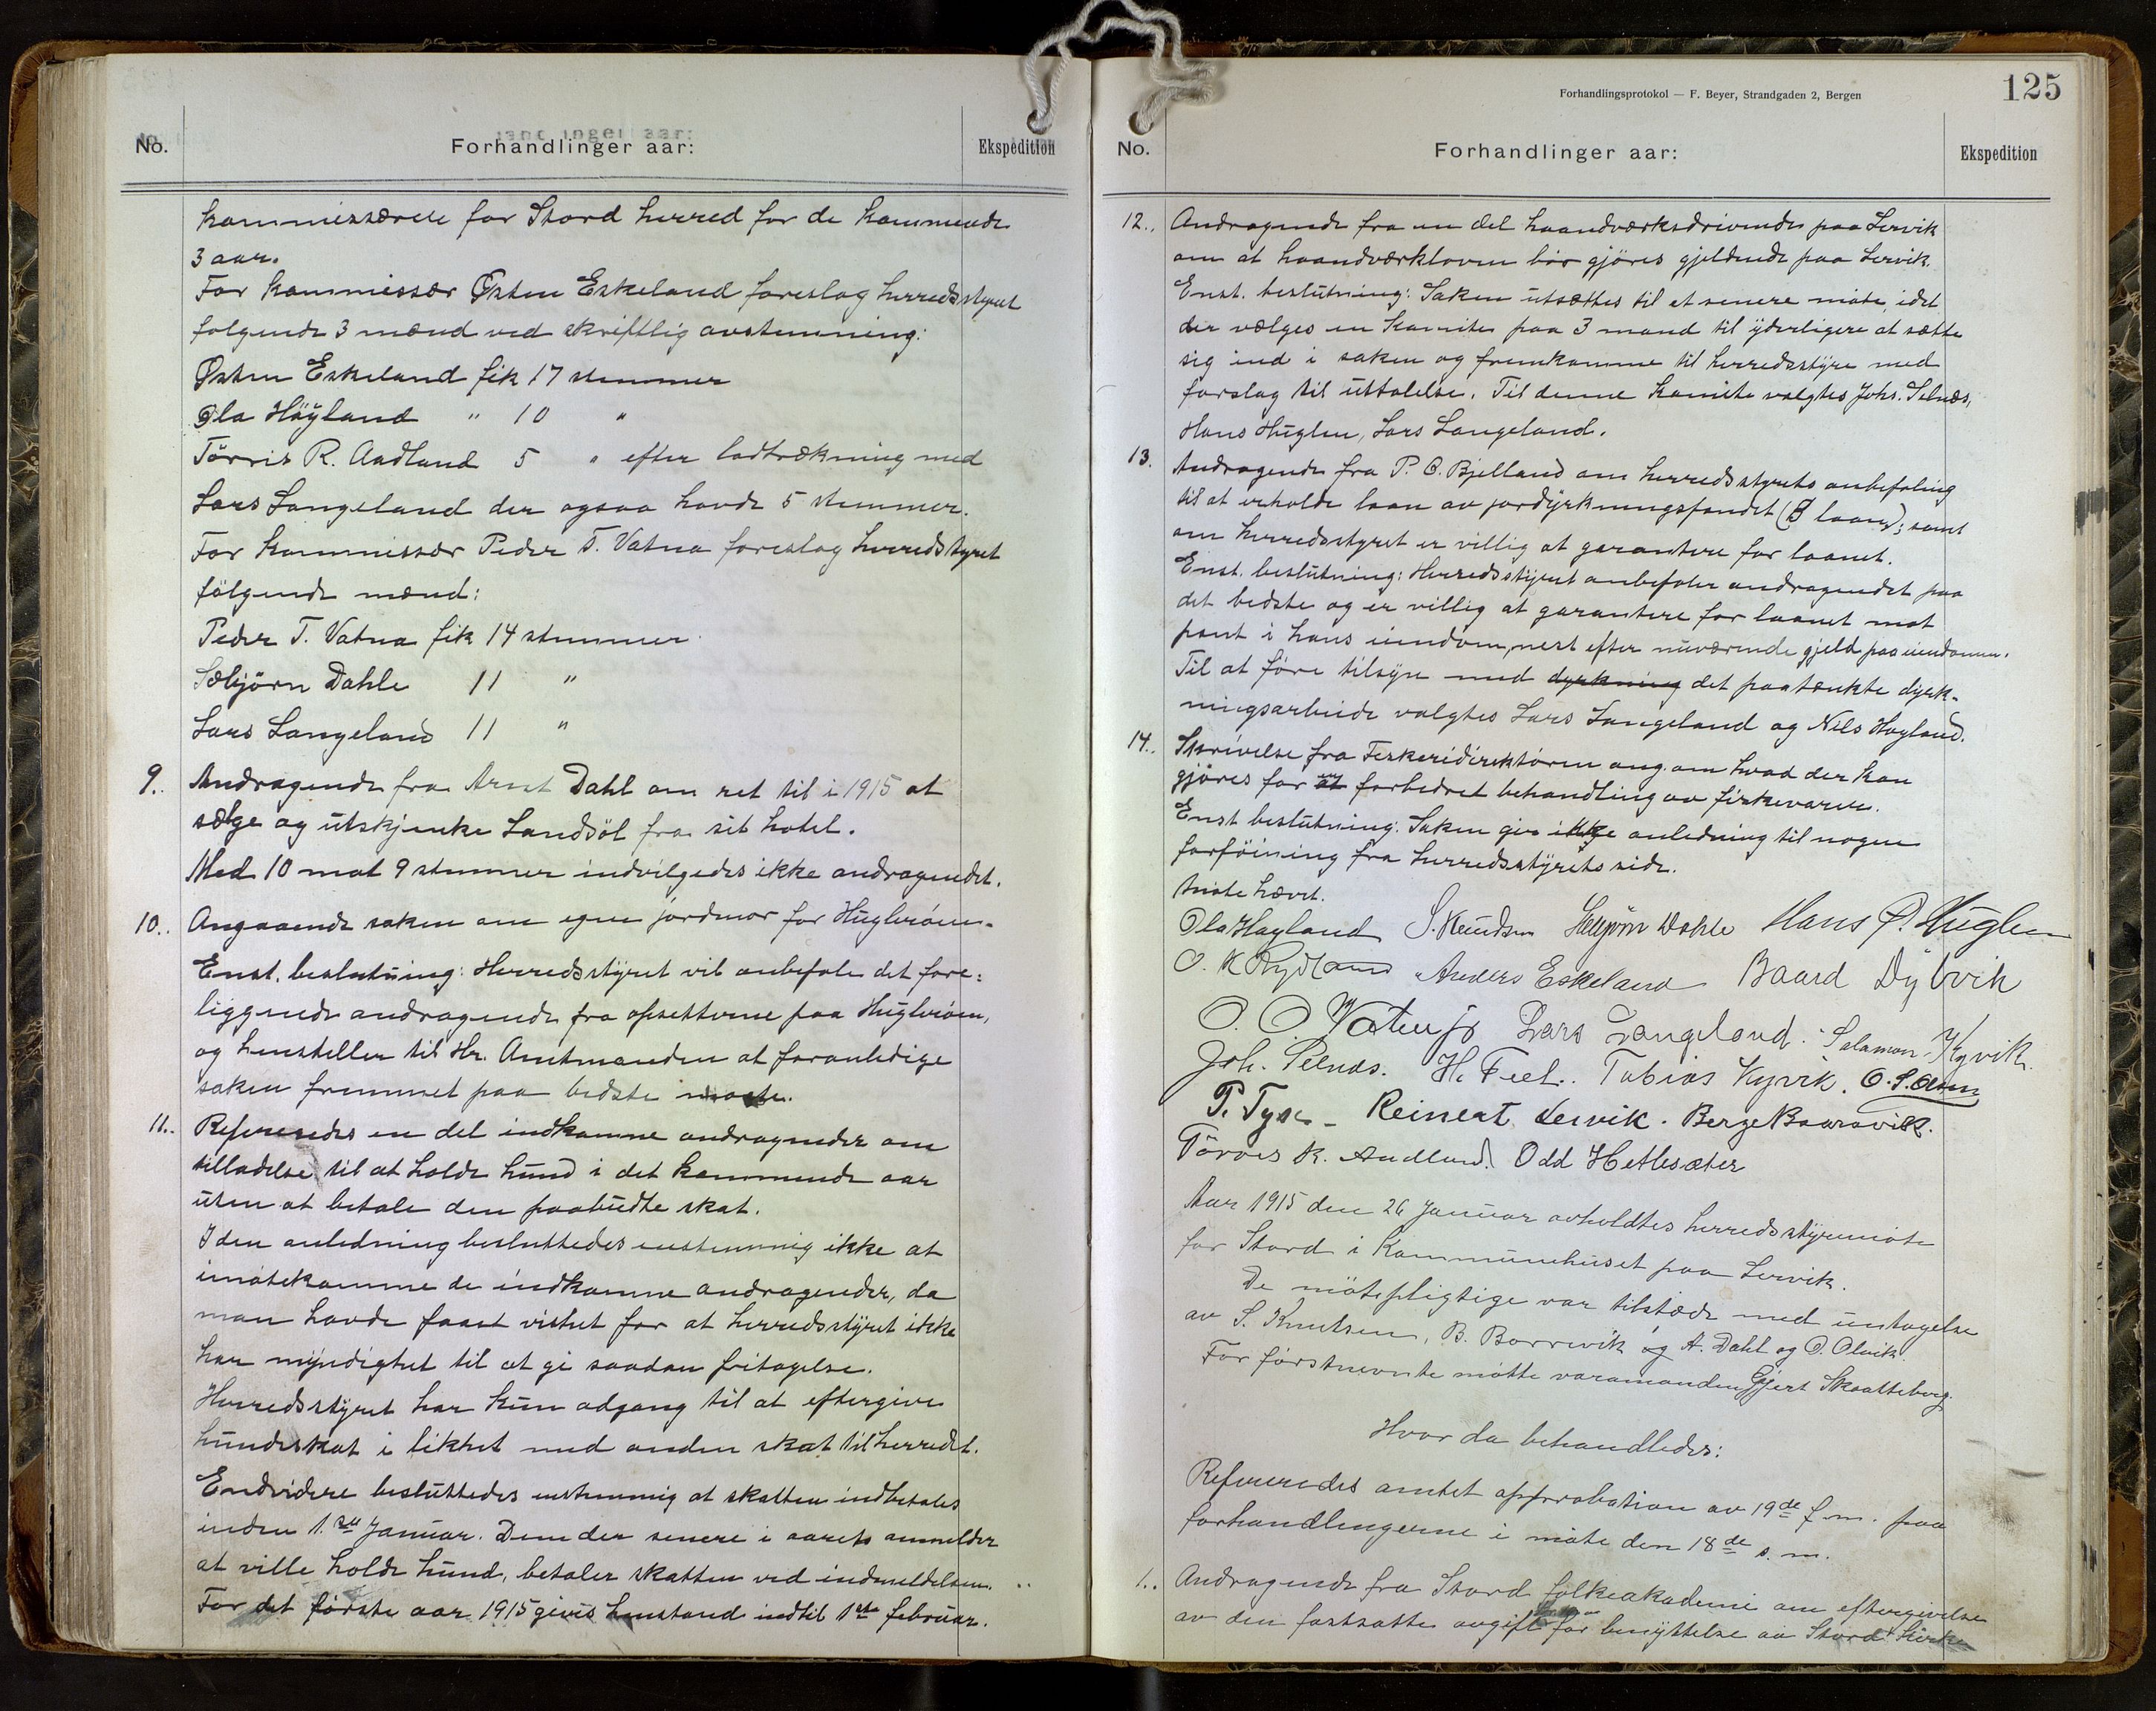 No.
Forhandlinger aar:
Ekspedition
kommissærer for Stord herred for de kommende
3 aar.
For kommissær Østen Eskeland foreslog herredsstyret
følgende 3 mænd ved skriftlig avstemning:
Østen Eskeland fik 17 stemmer
Ola Höyland " 10 "
Törris R. Aadland 5 " efter lodtrækning med
Lars Langeland der ogsaa havde 5 stemmer.
For kommissær Peder T. Vatna foreslog herredstyret
fölgende mænd:
Peder T. Vatna fik 14 stemmer
Sæbjörn Dahle 11 "
Lars Langeland 11 "
9. Andragende fra Arnt Dahl om ret til i 1915 at
sælge og utskjenke Landsöl fra sit hotel.
Med 10 mot 9 stemmer indvilgedes ikke andragendet.
10. Angaaende saken om egen jordmor for Huglvöien.
Enst. beslutning: Herredsstyret vil anbefale det fore=
liggende andragende fra opsetterne paa Huglvöien,
og henstiller til Hr. Amtmanden at foranledige
saken fremmet paa bedste maate.
11. Refereredes en del indkomne andragender om
tilladelse til at holde hund i det kommende aar
uten at betale den paabudte skat.
I den anledning besluttedes enstemmig ikke at
imøtekomme de indkomne andragender, da
man havde faaet visshet for at herredsstyret ikke
har myndighet til at gi saadan fritagelse.
Herredsstyret har kun adgang til at eftergive
hundeskat i likhet med anden skat til herredet.
Endvidere besluttedes enstemmig at skatten indbetales
inden 1.ste Januar. Dem der senere i aarets anmelder
at ville holde hund, betaler skatten ved indmeldelsen.
For det første aar 1915 givis henstand indtil 1ste februar.
Forhandlingsprotokol — F. Beyer, Strandgaden 2, Bergen
125
No.
Forhandlinger aar:
Ekspedition
12. Andragende fra en del haandværksdrivende paa Lervik
om at haandværkloven bör gjöres gjeldende paa Lervik.
Enst. beslutning: Saken utsættes til et senere møte, idet
der vælges en komite paa 3 mand til yderligere at sætte
sig ind i saken og fremkomme til herredsstyre med
forslag til uttalelse. Til denne komite valgtes Johs. Selnæs,
Hans Huglen, Lars Langeland.
13. Andragende fra P. C. Bjelland om herredsstyrets anbefaling
til at erholde laan av jorddyrkningsfondet (B laan); samt
om herredsstyret er villig at garantere for laanet.
Enst. beslutning: Herredsstyret anbefaler andragendet paa
det bedste og er villig at garantere for laanet mot
pant i hans eiendom, nest efter nuværende gjeld paa eiendommen.
Til at före tilsyn med dyrkning det paatænkte dyrk-
ningsarbeide valgtes Lars Langeland og Nils Høyland.
14. Skrivelse fra Feskeridirektören ang. om hvad der kan
gjöres for en forbedret behandling av fiskevarer.
Enst beslutning: Saken gir ikke anledning til nogen
forföining fra herredsstyrets side.
Møte hævet.
Ola Høyland S. Knudsen Sæbjörn Dahle Hans P. Huglen
O. K. Rydland Anders Eskeland Baard Dybvik
O. O. Vatna jr Lars Langeland. Salamon Kyvik.
Joh. Selnæs. H. Teel. Tobias Kyvik. O. S. Olsen
P. Tyse - Reinert Lervik. Berge Baarsvik.
Törres R. Aadland. Odd Hetlesæter
Aar 1915 den 26 Januar avholdtes herredsstyremöte
for Stord i Kommunehuset paa Lervik.
De mötepligtige var tilstæde med undtagelse
av S. Knutsen, B. Borrevik og A. Dahl og O. Olvik.
For förstnevnte møtte varamanden Gjert Skaatteberg.
Hvor da behandledes:
Refereredes amtet approbation av 19de f. m. paa
forhandlingerne i möte den 18de s. m.
1. Andragende fra Stord folkeakademi om eftergivelse
av den fastsatte avgift for benyttelse av Stord kirke